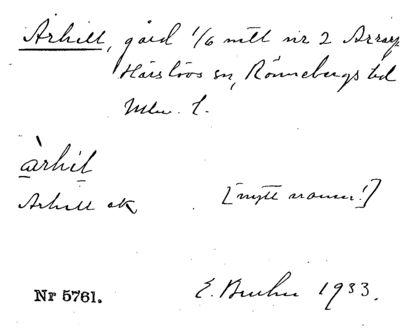 Arhill, gård 1/6 mtl nr 2 Arrarp
Härslövs sn, Rönnebergs hd
Mlm. l.
àrhil
Arhill ek [nytt namn!]
Nr 5761. E. Bruhn 1933.